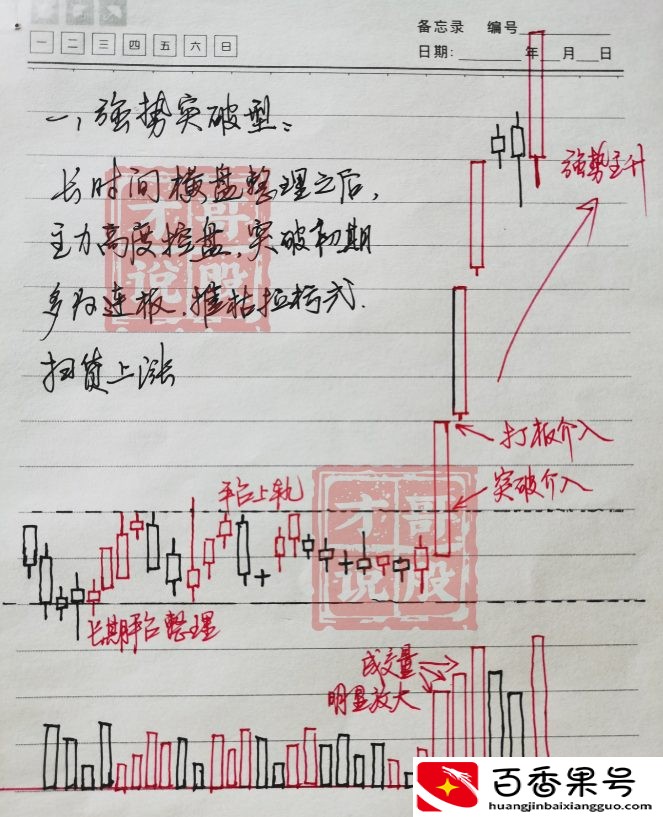 备忘录 编号
一 二 三 四 五 六 日
日期: 年 月 日
一、强势突破型:
长时间横盘整理之后,
主力高度控盘,突破初期
多为连板,摧枯拉朽式
扫货上涨
强势主升
打板介入
突破介入
平台上轨
长期平台整理
成交量
明显放大
才哥
说股
才哥
说股
百香果号
huangjinbaixiangguo.com